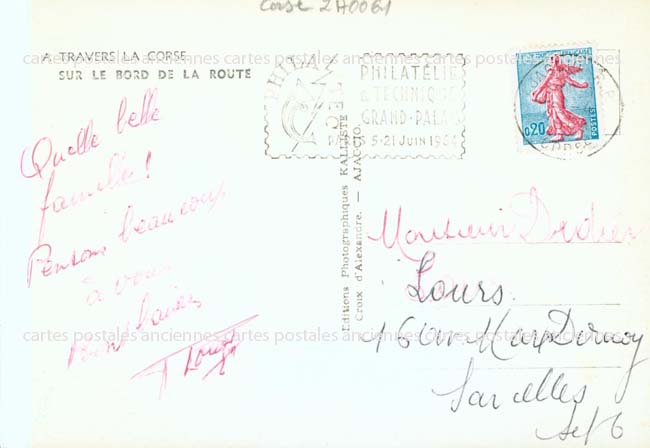 Corse 2A0061
A TRAVERS LA CORSE
SUR LE BORD DE LA ROUTE
PHILATEC
PHILATÉLIE
& TECHNIQUE
GRAND-PALAIS
PARIS 5-21 JUIN 1964
0,20
POSTES
cartes postales anciennes cartes postales anciennes cartes postales
Quelle belle
famille !
Pensons beaucoup
à vous
Bons baisers
Editions Photographiques KALLISTE
Croix d'Alexandre. — AJACCIO.
Monsieur Didier
Lours
16 av Marx Dormoy
Sarcelles
S et O
cartes postales anciennes cartes postales anciennes cartes postales